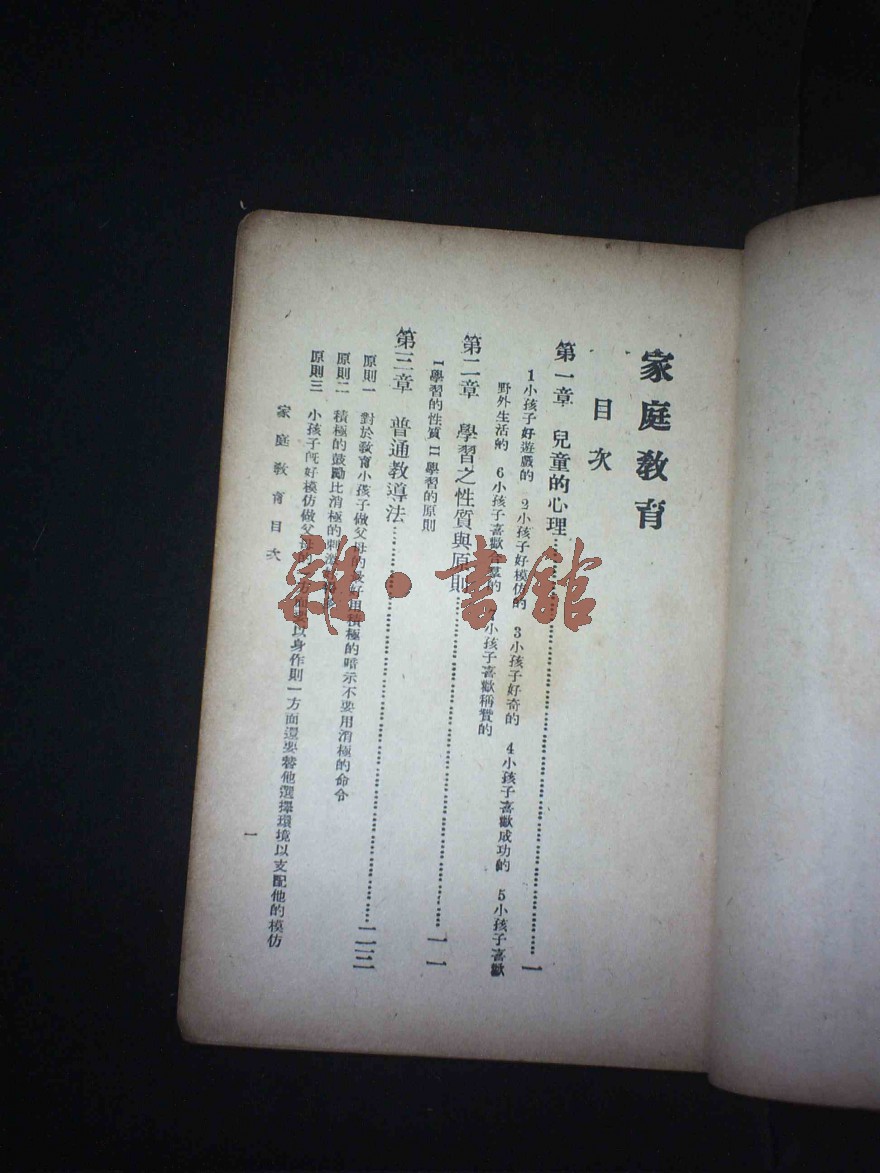 家庭教育
目次
第一章 兒童的心理……一
1小孩子好遊戲的 2小孩子好模仿的 3小孩子好奇的 4小孩子喜歡成功的 5小孩子喜歡
野外生活的 6小孩子喜歡合羣的 7小孩子喜歡稱贊的
第二章 學習之性質與原則……一一
I學習的性質 II學習的原則
第三章 普通教導法……
原則一 對於教育小孩子做父母的最好用積極的暗示不要用消極的命令
原則二 積極的鼓勵比消極的刺激
原則三 小孩子旣好模仿做父母的一方面要以身作則一方面還要替他選擇環境以支配他的模仿
家庭教育目次
一
雜·書館